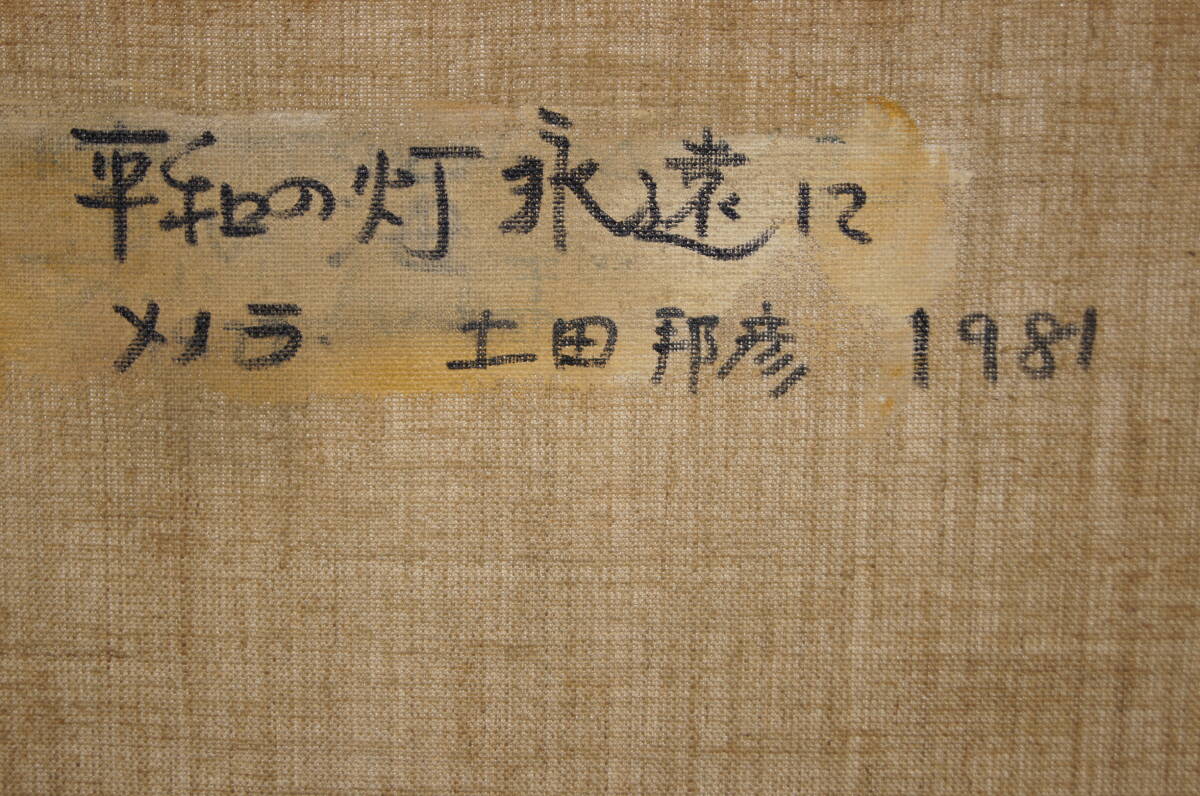 平和の灯 永遠に
メノラ 土田邦彦 1981